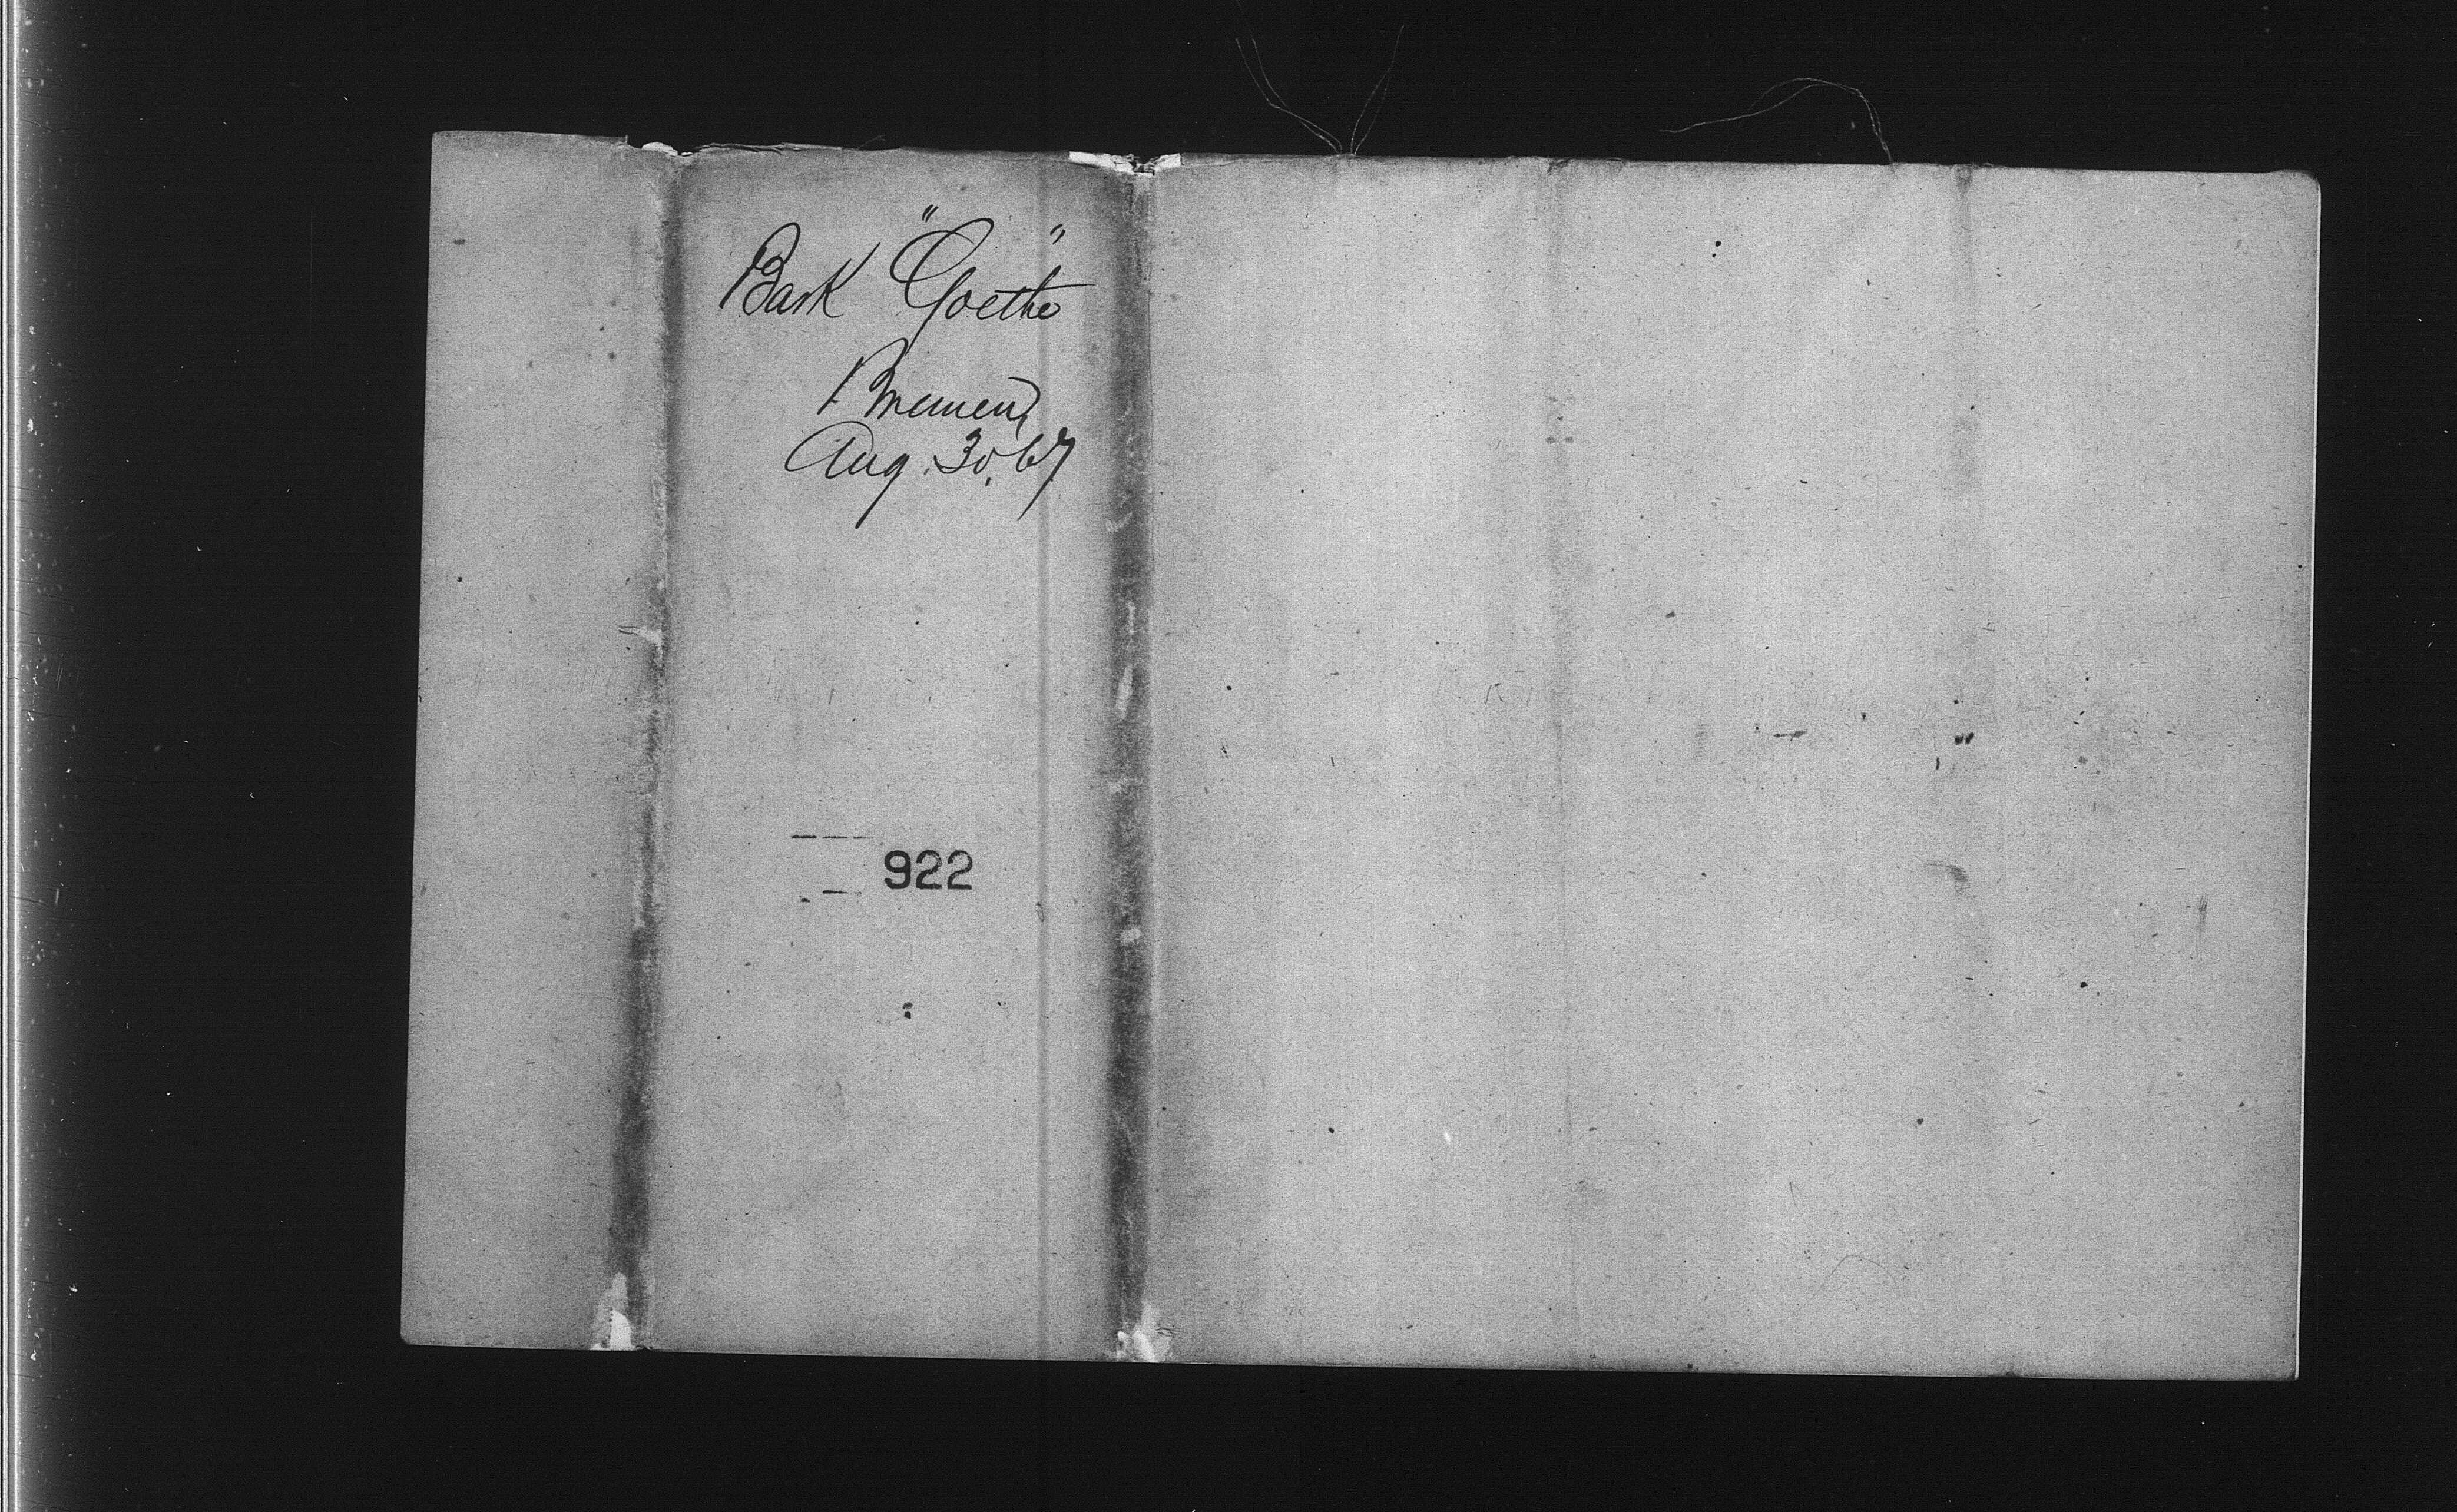 Bark "Goethe"
Bremen,
Aug. 30, 67
922